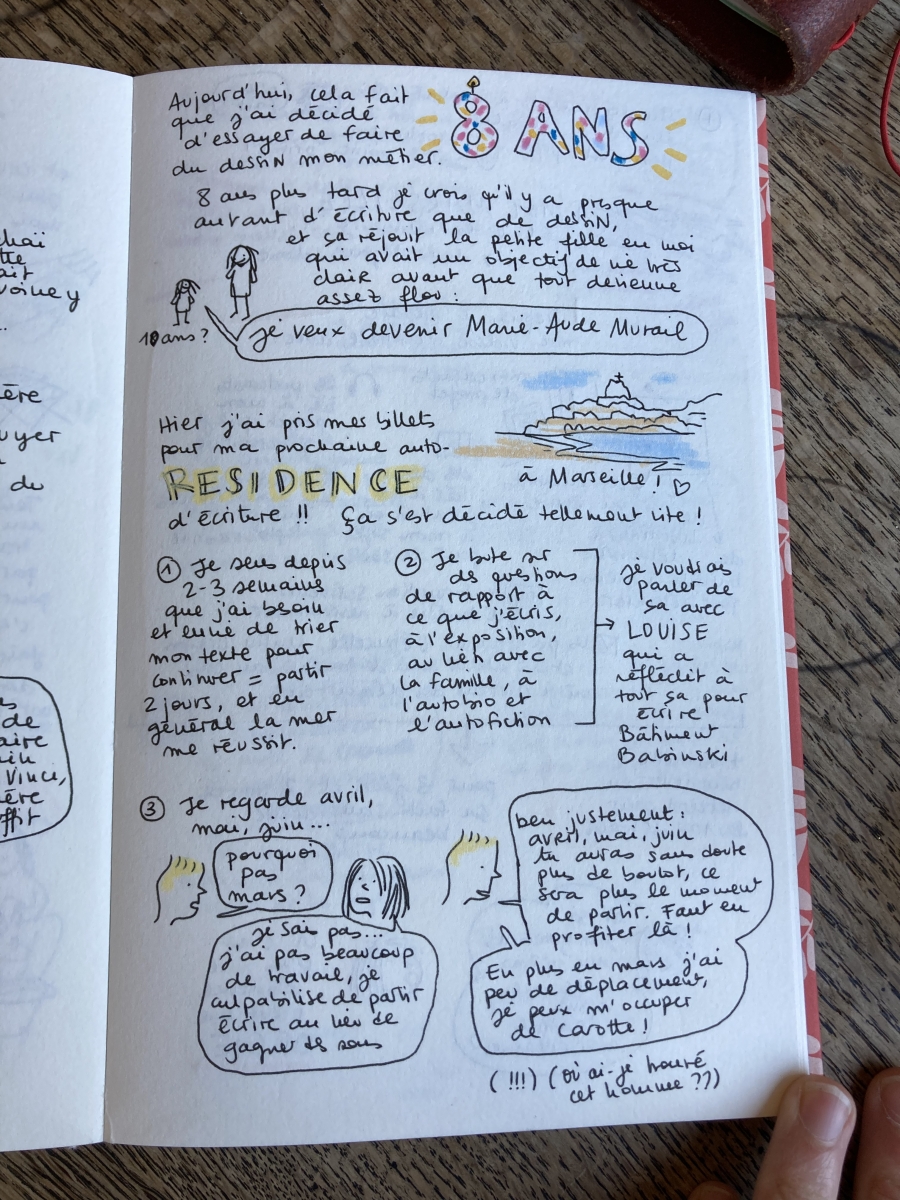 Aujourd'hui, cela fait
que j'ai décidé
d'essayer de faire
du dessin mon métier.
8 ANS
8 ans plus tard je crois qu'il y a presque
autant d'écriture que de dessin,
et ça réjouit la petite fille en moi
qui avait un objectif de vie très
clair avant que tout devienne
assez flou :
10 ans ?
je veux devenir Marie-Aude Murail
Hier j'ai pris mes billets
pour ma prochaine auto-
RESIDENCE
d'écriture !!
à Marseille ! ♡
ça s'est décidé tellement vite !
① Je sens depuis
2-3 semaines
que j'ai besoin
et envie de trier
mon texte pour
continuer = partir
2 jours, et en
général la mer
me réussit.
② Je bute sur
des questions
de rapport à
ce que j'écris,
à l'exposition,
au lien avec
la famille, à
l'autobio et
l'autofiction
→ je voudrais
parler de
ça avec
LOUISE
qui a
réfléchit à
tout ça pour
écrire
Bâtiment
Babinski
③ Je regarde avril,
mai, juin...
pourquoi
pas
mars ?
je sais pas...
j'ai pas beaucoup
de travail, je
culpabilise de partir
écrire au lieu de
gagner des sous
ben justement :
avril, mai, juin
tu auras sans doute
plus de boulot, ce
sera plus le moment
de partir. Faut en
profiter là !
En plus en mars j'ai
peu de déplacement,
je peux m'occuper
de Carotte !
(!!!) (où ai-je trouvé
cet homme ??)
ère
uyer
du
de
aire
Vinci,
ère